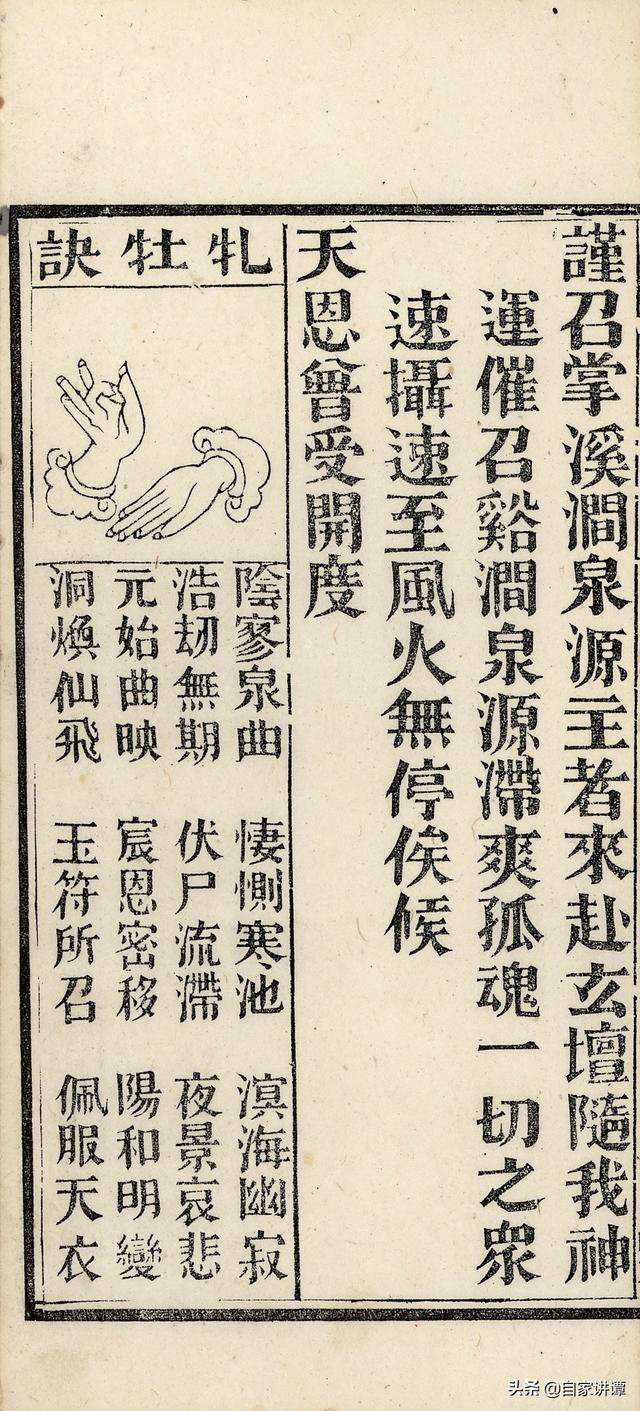 謹召掌溪澗泉源主者來赴玄壇隨我神
運催召谿澗泉源滯爽孤魂一切之眾
速攝速至風火無停俟候
天恩曾受開度
牝牡訣
陰寥泉曲 悽惻寒池 溟海幽寂
浩刼無期 伏尸流滯 夜景哀悲
元始曲映 宸恩密移 陽和明變
洞煥仙飛 玉符所召 佩服天衣
头条 @自家讲谭